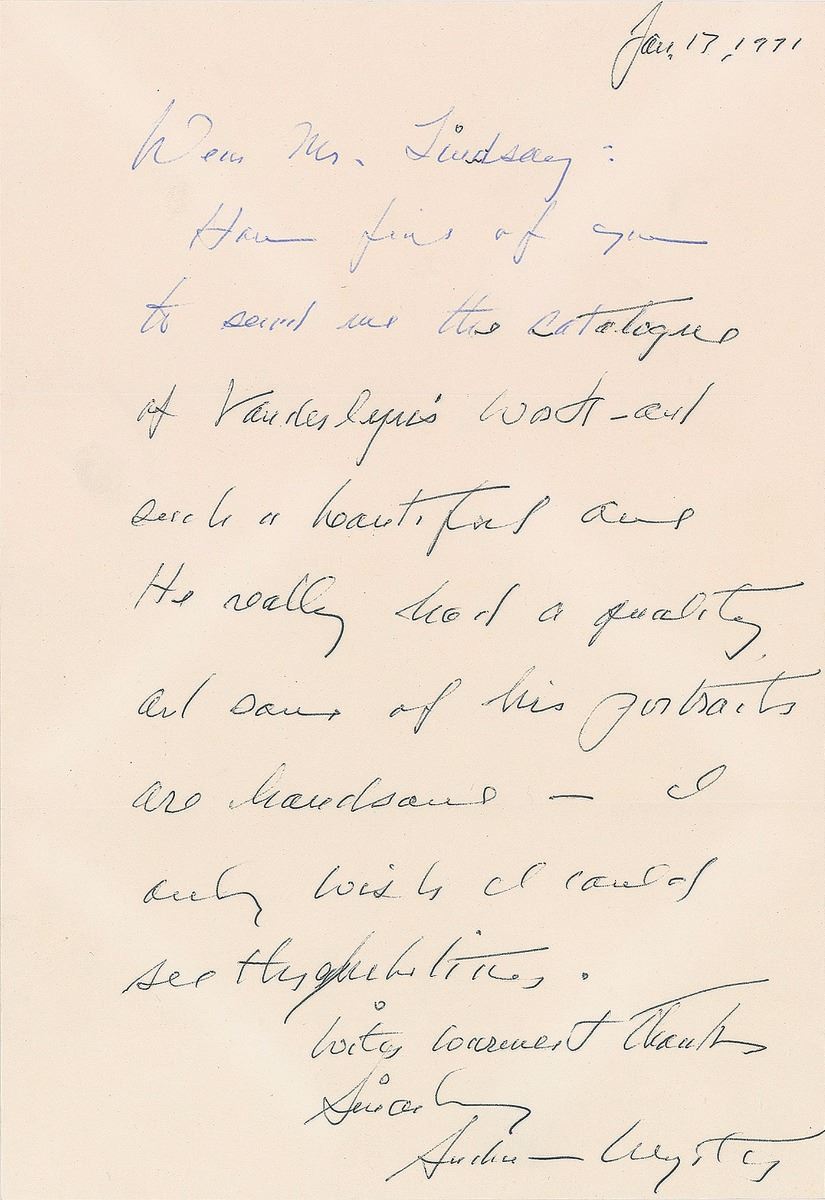 Jan. 17, 1971
Dear Mr. Lindsay:
How fine of you
to send me the catalogue
of Vanderlyn's work - and
such a beautiful one
He really had a quality
and some of his portraits
are handsome — I
only wish I could
see the exhibition.
With warmest thanks
Sincerely
Andrew Wyeth